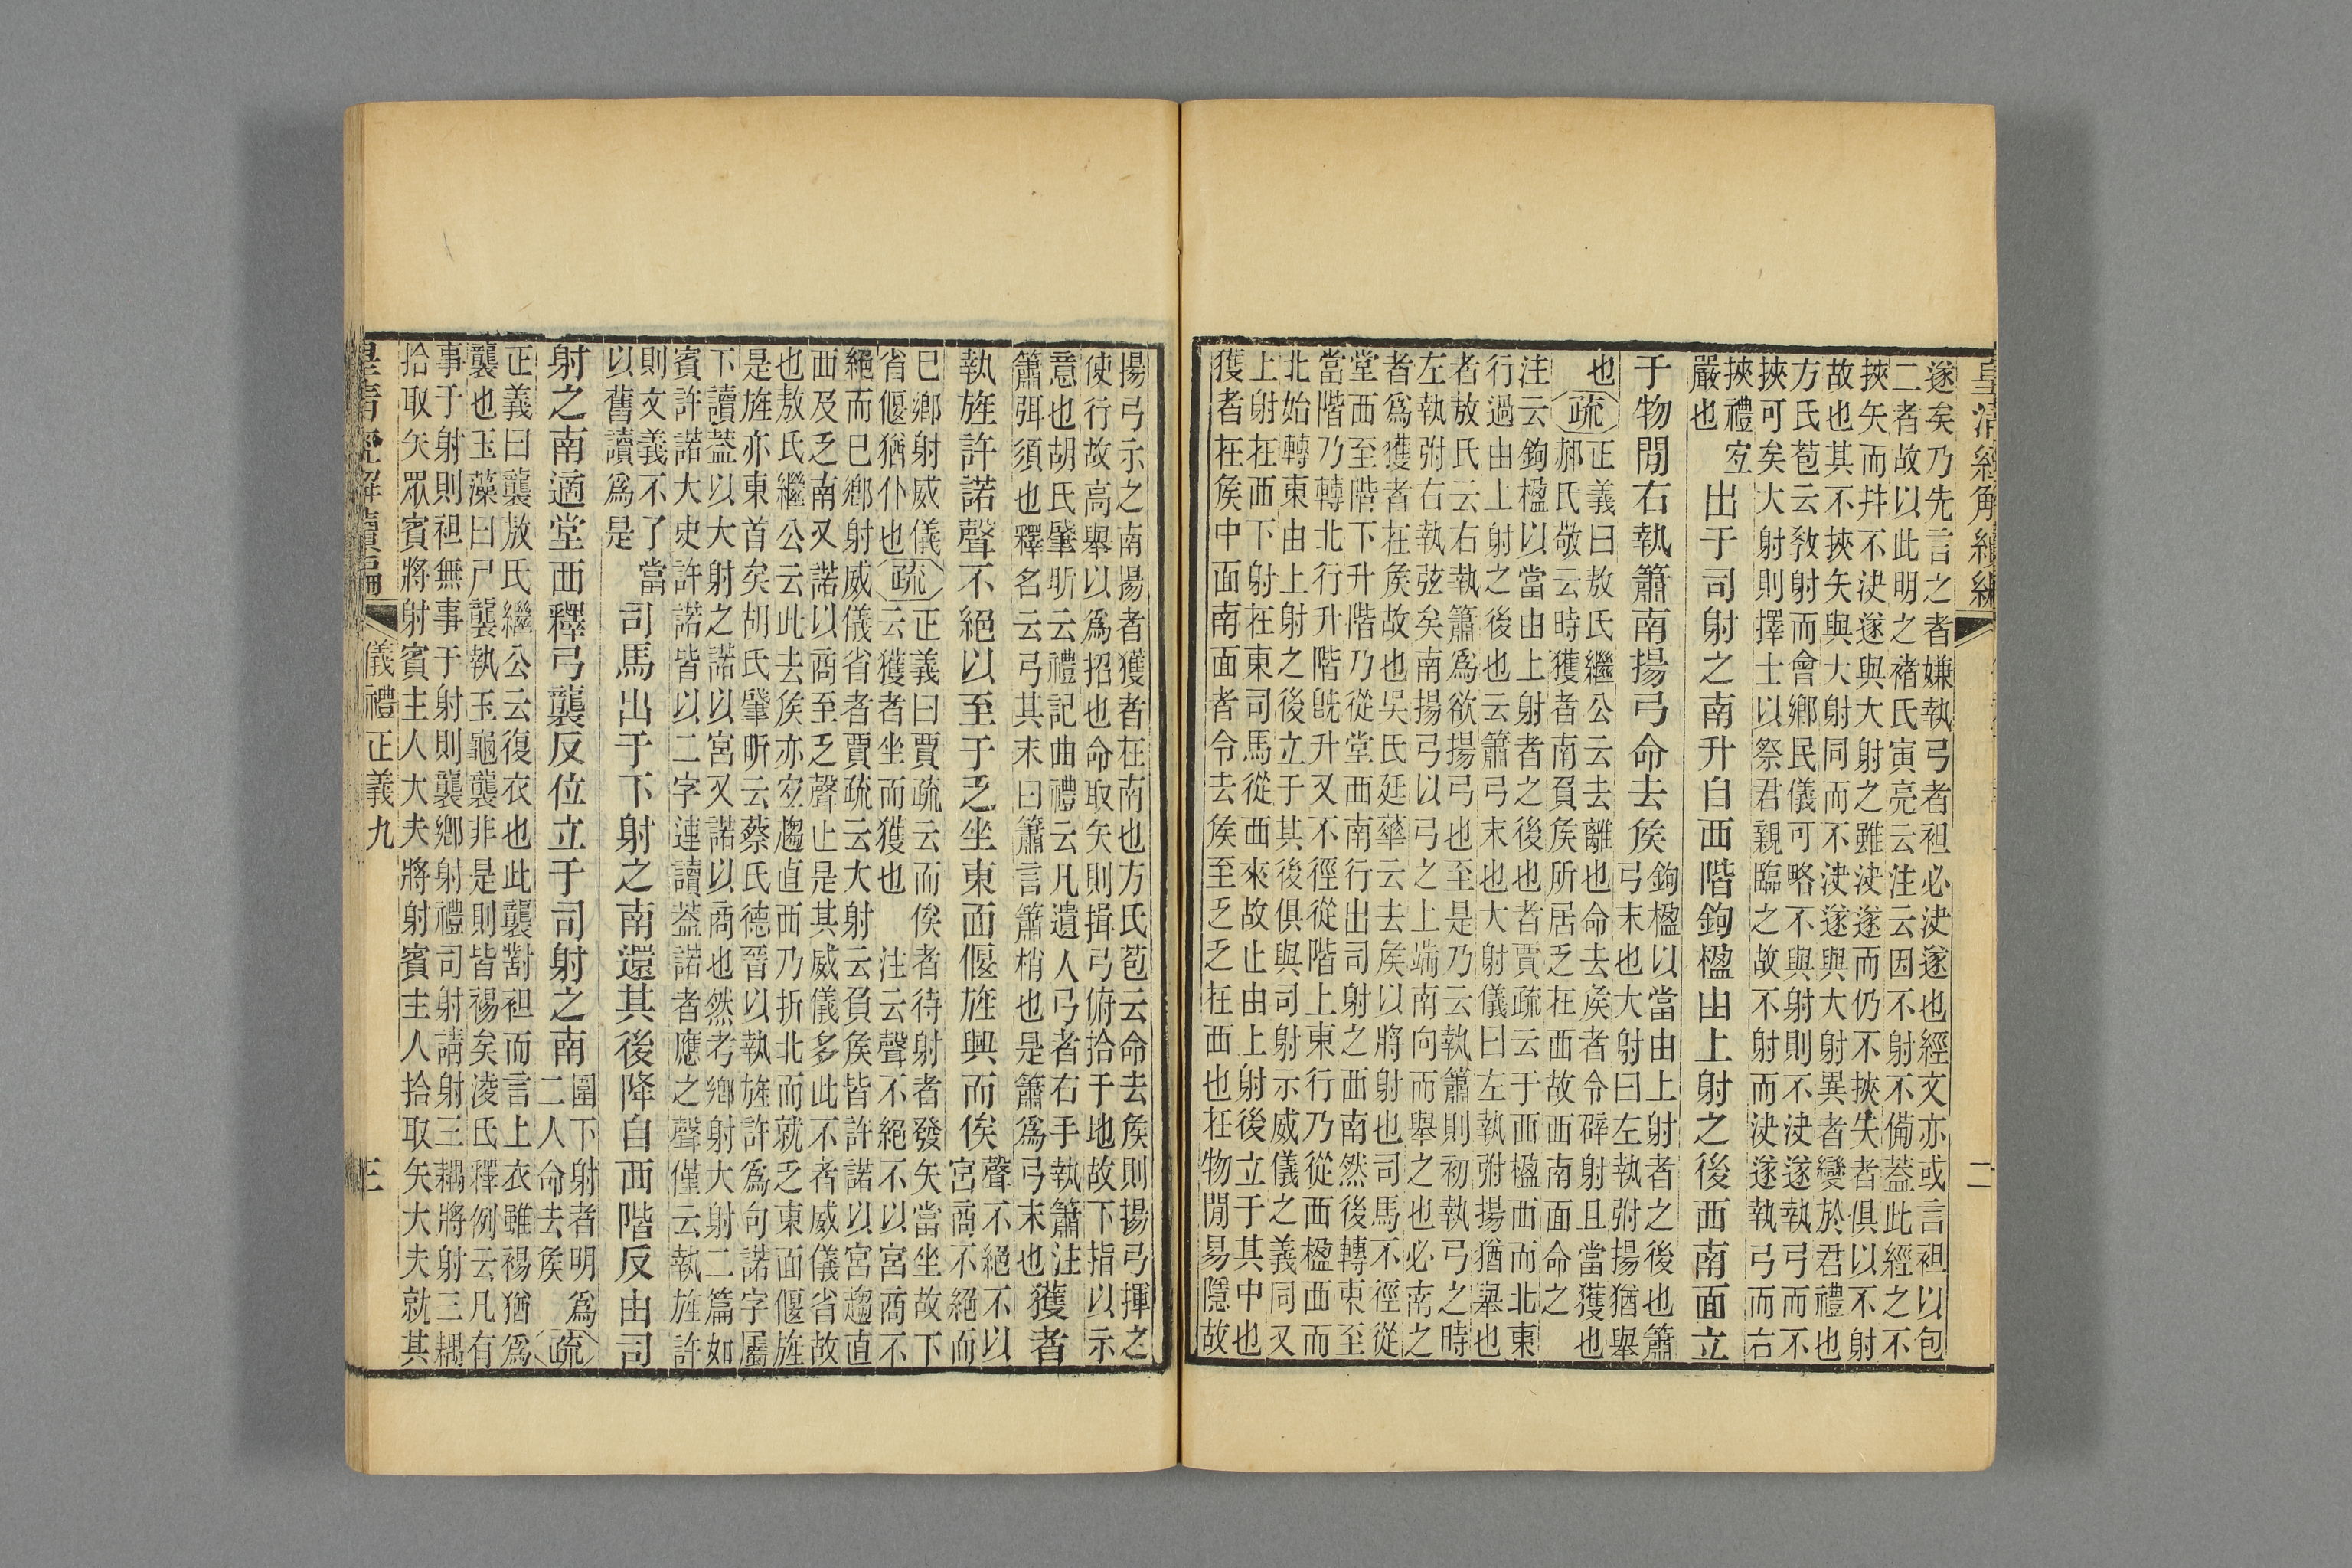 皇清經解續編 二
遂矣乃先言之者嫌執弓者袒必決遂也經文亦或言袒以包
二者故以此明之褚氏寅亮云注云因不射不備葢此經之不
挾矢而幷不決遂與大射之雖決遂而仍不挾矢者俱以不射
故也其不挾矢與大射同而不決遂與大射異者變於君禮也
方氏苞云敎射而會鄉民儀可略不與射則不決遂執弓而不
挾可矣大射則擇士以祭君親臨之故不射而決遂執弓而右
挾禮宐
嚴也
出于司射之南升自西階鉤楹由上射之後西南面立
于物閒右執簫南揚弓命去矦
鉤楹以當由上射者之後也簫
弓末也大射曰左執弣揚猶舉
也
疏
正義曰敖氏繼公云去離也命去矦者令辟射且當獲也
郝氏敬云時獲者南負矦所居乏在西故西南面命之
注云鉤楹以當由上射者之後也者賈疏云于西楹西而北東
行過由上射之後也云簫弓末也大射儀曰左執弣揚猶舉也
者敖氏云右執簫爲欲揚弓也至是乃云執簫則初執弓之時
左執弣右執弦矣南揚弓以弓之上端南向而舉之也必南之
者爲獲者在矦故也吳氏延華云去矦以將射也司馬不徑從
堂西至階下升階乃從堂西南行出司射之西南然後轉東至
當階乃轉北行升階旣升又不徑從階上東行乃從西楹西而
北始轉東由上射之後立于其後俱與司射示威儀之義同又
上射在西下射在東司馬從西來故止由上射後立于其中也
獲者在矦中面南面者令去矦至乏乏在西也在物閒易隱故
揚弓示之南揚者獲者在南也方氏苞云命去矦則揚弓揮之
使行故高舉以爲招也命取矢則揖弓俯拾于地故下指以示
意也胡氏肇昕云禮記曲禮云凡遺人弓者右手執簫注
簫弭須也釋名云弓其末曰簫言簫梢也是簫爲弓末也
獲者
執旌許諾聲不絕以至于乏坐東面偃旌興而俟
聲不絕不以
宮商不絕而
巳鄉射威儀
省偃猶仆也
疏
正義曰賈疏云而俟者待射者發矢當坐故下
云獲者坐而獲也 注云聲不絕不以宮商不
絕而巳鄉射威儀省者賈疏云大射云負矦皆許諾以宮趨直
西及乏南又諾以商至乏聲止是其威儀多此不者威儀省故
也敖氏繼公云此去矦亦宐趨直西乃折北而就乏東面偃旌
是旌亦東首矣胡氏肇昕云蔡氏德晉以執旌許爲句諾字屬
下讀葢以大射之諾以宮又諾以商也然考鄉射大射二篇如
賓許諾大史許諾皆以二字連讀葢諾者應之聲僅云執旌許
則文義不了當
以舊讀爲是
司馬出于下射之南還其後降自西階反由司
射之南適堂西釋弓襲反位立于司射之南
圍下射者明爲
二人命去矦
疏
正義曰襲敖氏繼公云復衣也此襲對袒而言上衣雖裼猶爲
襲也玉藻曰尸襲執玉龜襲非是則皆裼矣淩氏釋例云凡有
事于射則袒無事于射則襲鄉射禮司射請射三耦將射三耦
拾取矢眾賓將射賓主人大夫將射賓主人拾取矢大夫就其
皇清經解續編 儀禮正義九 三